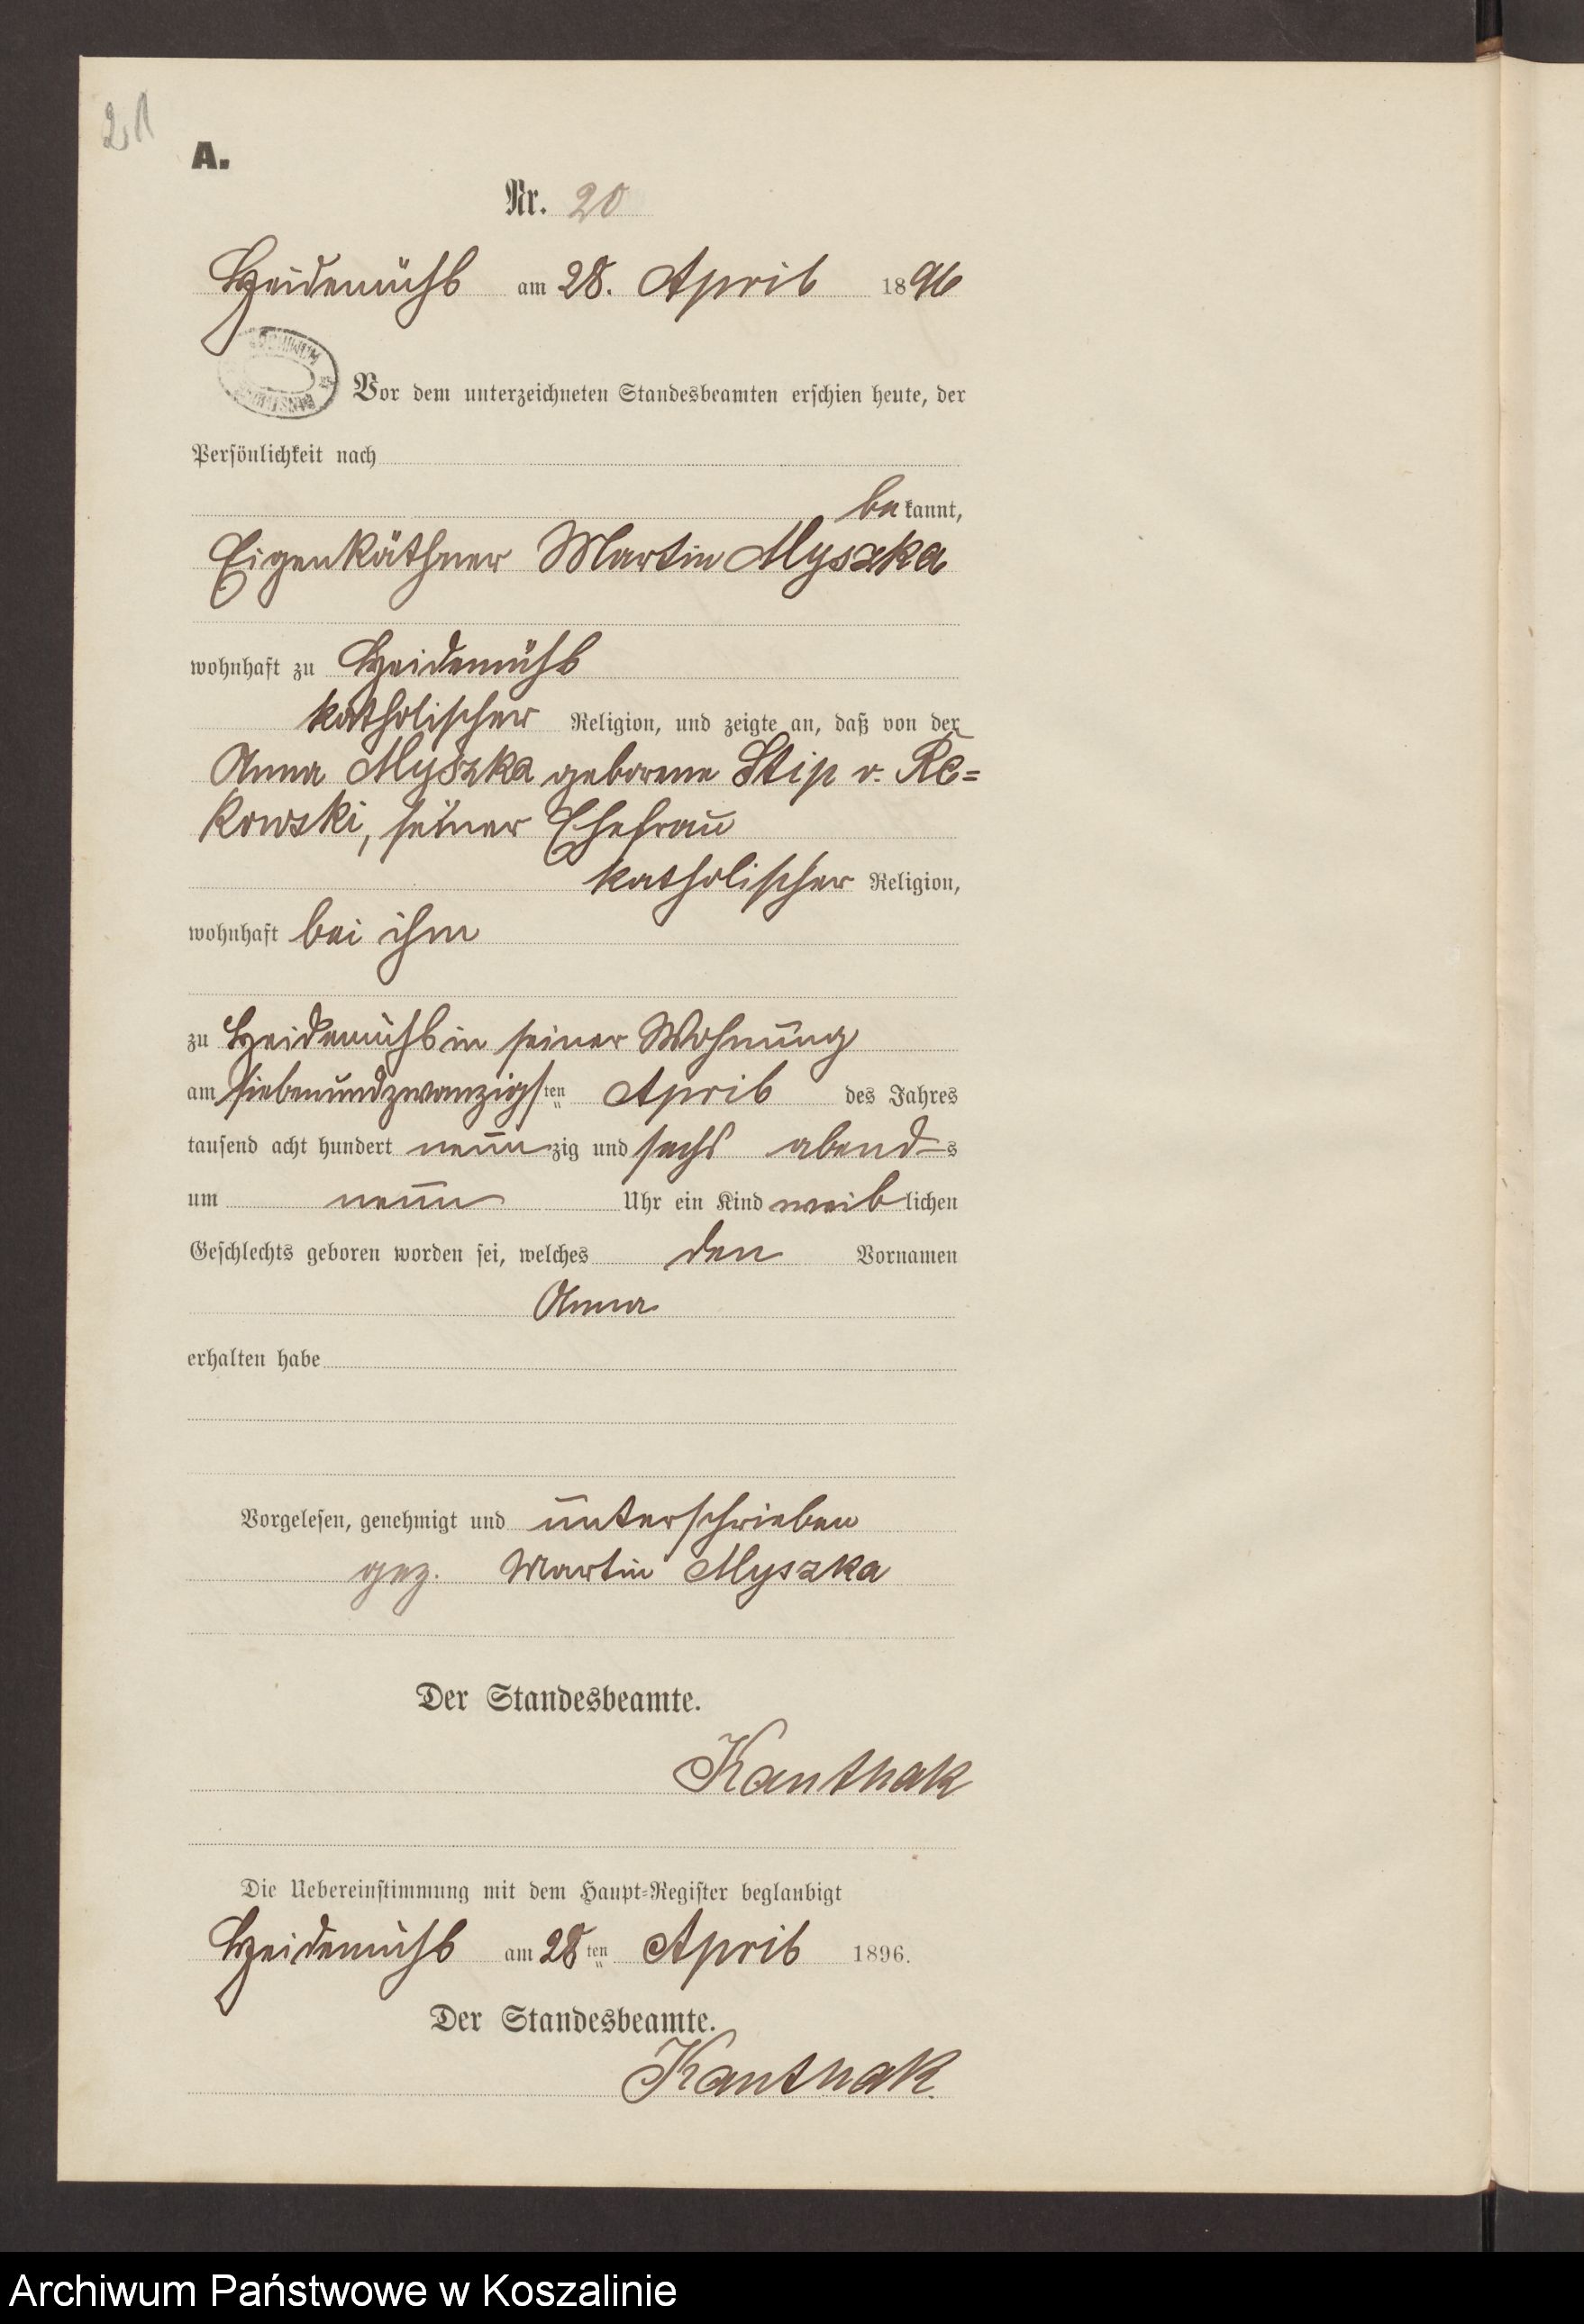 21
A.
Nr. 20
Heidemühl am 28. April 1896
ARCHIWUM
Vor dem unterzeichneten Standesbeamten erschien heute, der
Persönlichkeit nach
bekannt,
Eigenkäthner Martin Myszka
wohnhaft zu Heidemühl
katholischer Religion, und zeigte an, daß von der
Anna Myszka geborene Stip v. Re=
kowski, seiner Ehefrau
katholischer Religion,
wohnhaft bei ihm
zu Heidemühl in seiner Wohnung
am siebenundzwanzigsten April des Jahres
tausend acht hundert neunzig und sechs abends
um neun Uhr ein Kind weiblichen
Geschlechts geboren worden sei, welches den Vornamen
Anna
erhalten habe
Vorgelesen, genehmigt und unterschrieben
gez. Martin Myszka
Der Standesbeamte.
Kanthak
Die Uebereinstimmung mit dem Haupt=Register beglaubigt
Heidemühl am 28ten April 1896.
Der Standesbeamte.
Kanthak.
Archiwum Państwowe w Koszalinie